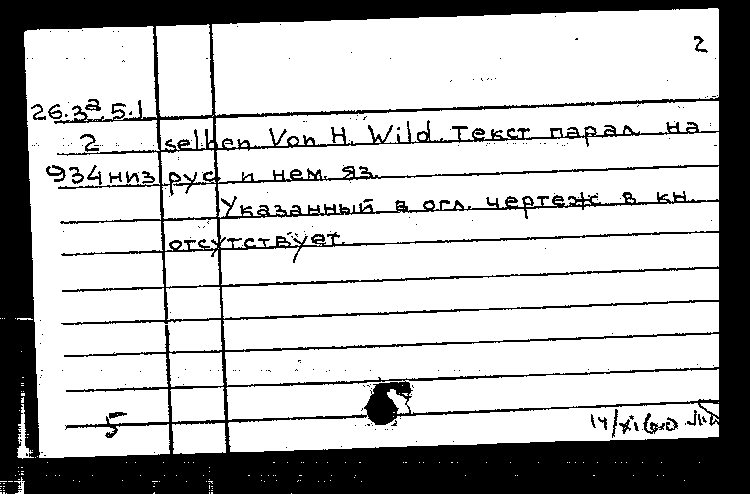 2
26.3а.5.1
2 selben Von H. Wild. Текст парал. на
934низ рус. и нем. яз.
Указанный в огл. чертеж в кн.
отсутствует.
5